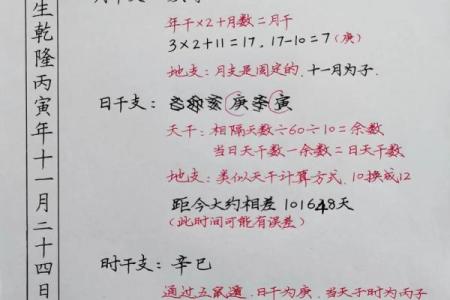 生乾隆丙寅年十一月二十四日
年干×2+月数=月干
3×2+11=17，17-10=7(庚)
地支：月支是固定的，十一月为子．
日干支： 庚 寅
天干：相隔天数÷60÷10=余数
当日天干数-余数=日天干数
地支：类似天干计算方式，10换成12
距今大约相差 101648天
(此时间可能有误差)
时干支：辛巳
通过五鼠遁，日干为庚，当天子时为丙子